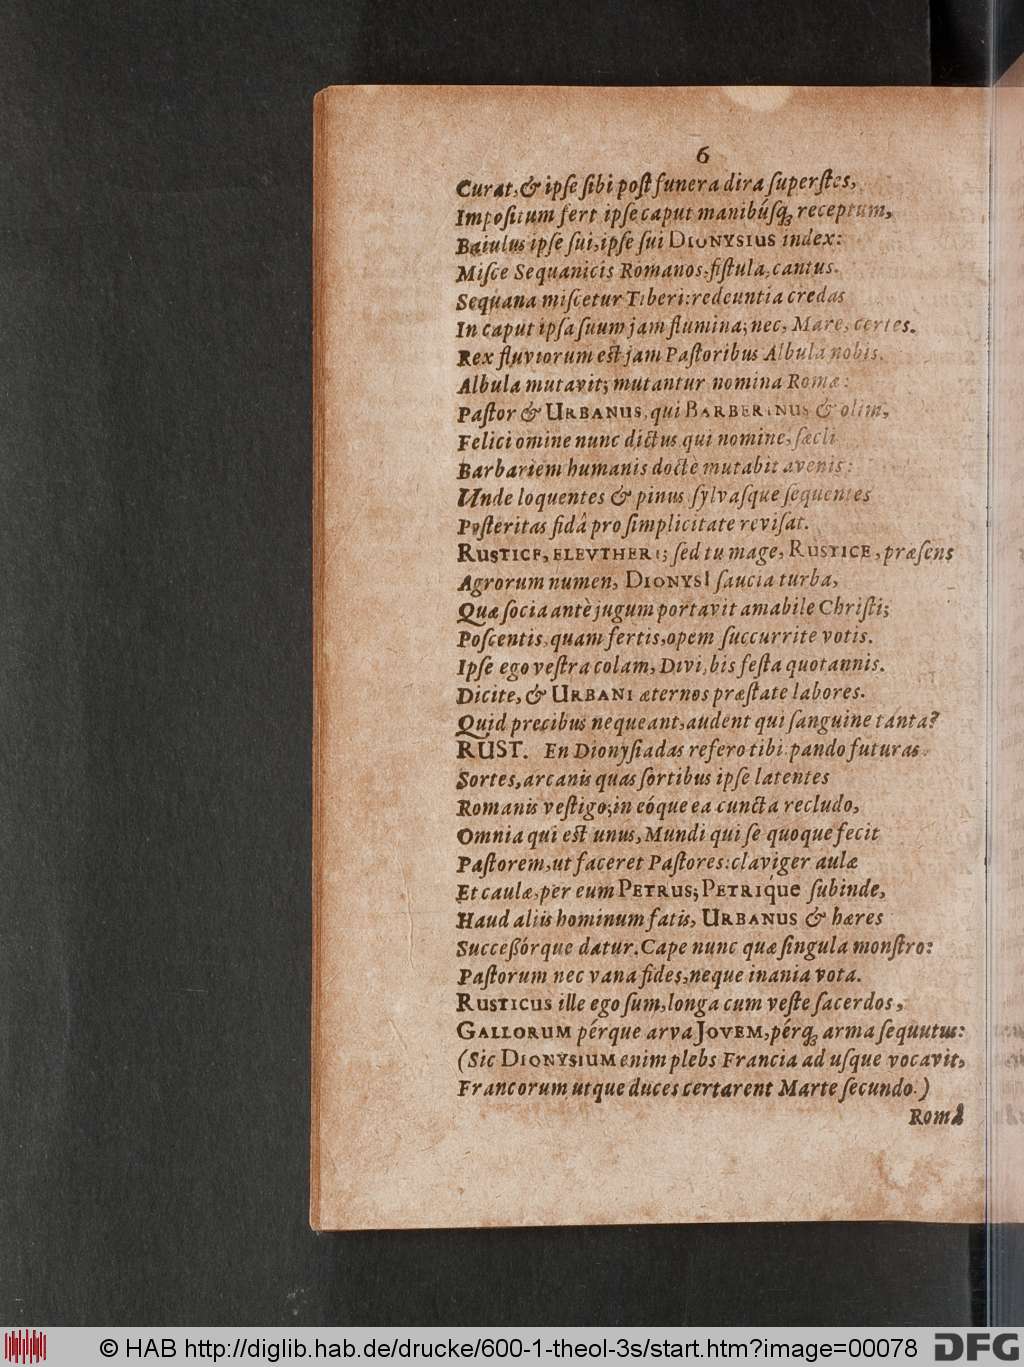 6
Curat, & ipſe ſibi poſt funera dira ſuperſtes,
Impoſitum fert ipſe caput manibúſqꝫ receptum,
Baiulus ipſe ſui, ipſe ſui DIONYSIUS index:
Miſce Sequanicis Romanos, fiſtula, cantus.
Sequana miſcetur Tiberi: redeuntia credas
In caput ipſa ſuum jam flumina; nec, Mare, certes.
Rex fluviorum eſt jam Paſtoribus Albula nobis.
Albula mutavit; mutantur nomina Romæ:
Paſtor & URBANUS, qui BARBERINUS & olim,
Felici omine nunc dictus qui nomine, ſæcli
Barbariem humanis doctè mutabit avenis:
Unde loquentes & pinus ſylvaſque ſequentes
Poſteritas fidâ pro ſimplicitate reviſat.
RUSTICE, ELEVTHERI; ſed tu mage, RUSTICE, præſens
Agrorum numen, DIONYSI ſaucia turba,
Quæ ſocia antè jugum portavit amabile Chriſti;
Poſcentis, quam fertis, opem ſuccurrite votis.
Ipſe ego veſtra colam, DIVI, bis feſta quotannis.
Dicite, & URBANI æternos præſtate labores.
Quid precibus nequeant, audent qui ſanguine tanta?
RUST. En Dionyſiadas refero tibi: pando futuras
Sortes, arcanis quas ſortibus ipſe latentes
Romanis veſtigo; in eóque ea cuncta recludo,
Omnia qui eſt unus, Mundi qui ſe quoque fecit
Paſtorem, ut faceret Paſtores: claviger aulæ
Et caulæ, per eum PETRUS; PETRIque ſubinde,
Haud aliis hominum fatis, URBANUS & hæres
Succeßórque datur. Cape nunc quæ ſingula monſtro:
Paſtorum nec vana fides, neque inania vota.
RUSTICUS ille ego ſum, longa cum veſte ſacerdos,
GALLORUM pérque arva JOVEM, pérqꝫ arma ſequutus:
(Sic DIONYSIUM enim plebs Francia ad uſque vocavit,
Francorum utque duces certarent Marte ſecundo.)
© HAB http://diglib.hab.de/drucke/600-1-theol-3s/start.htm?image=00078
DFG